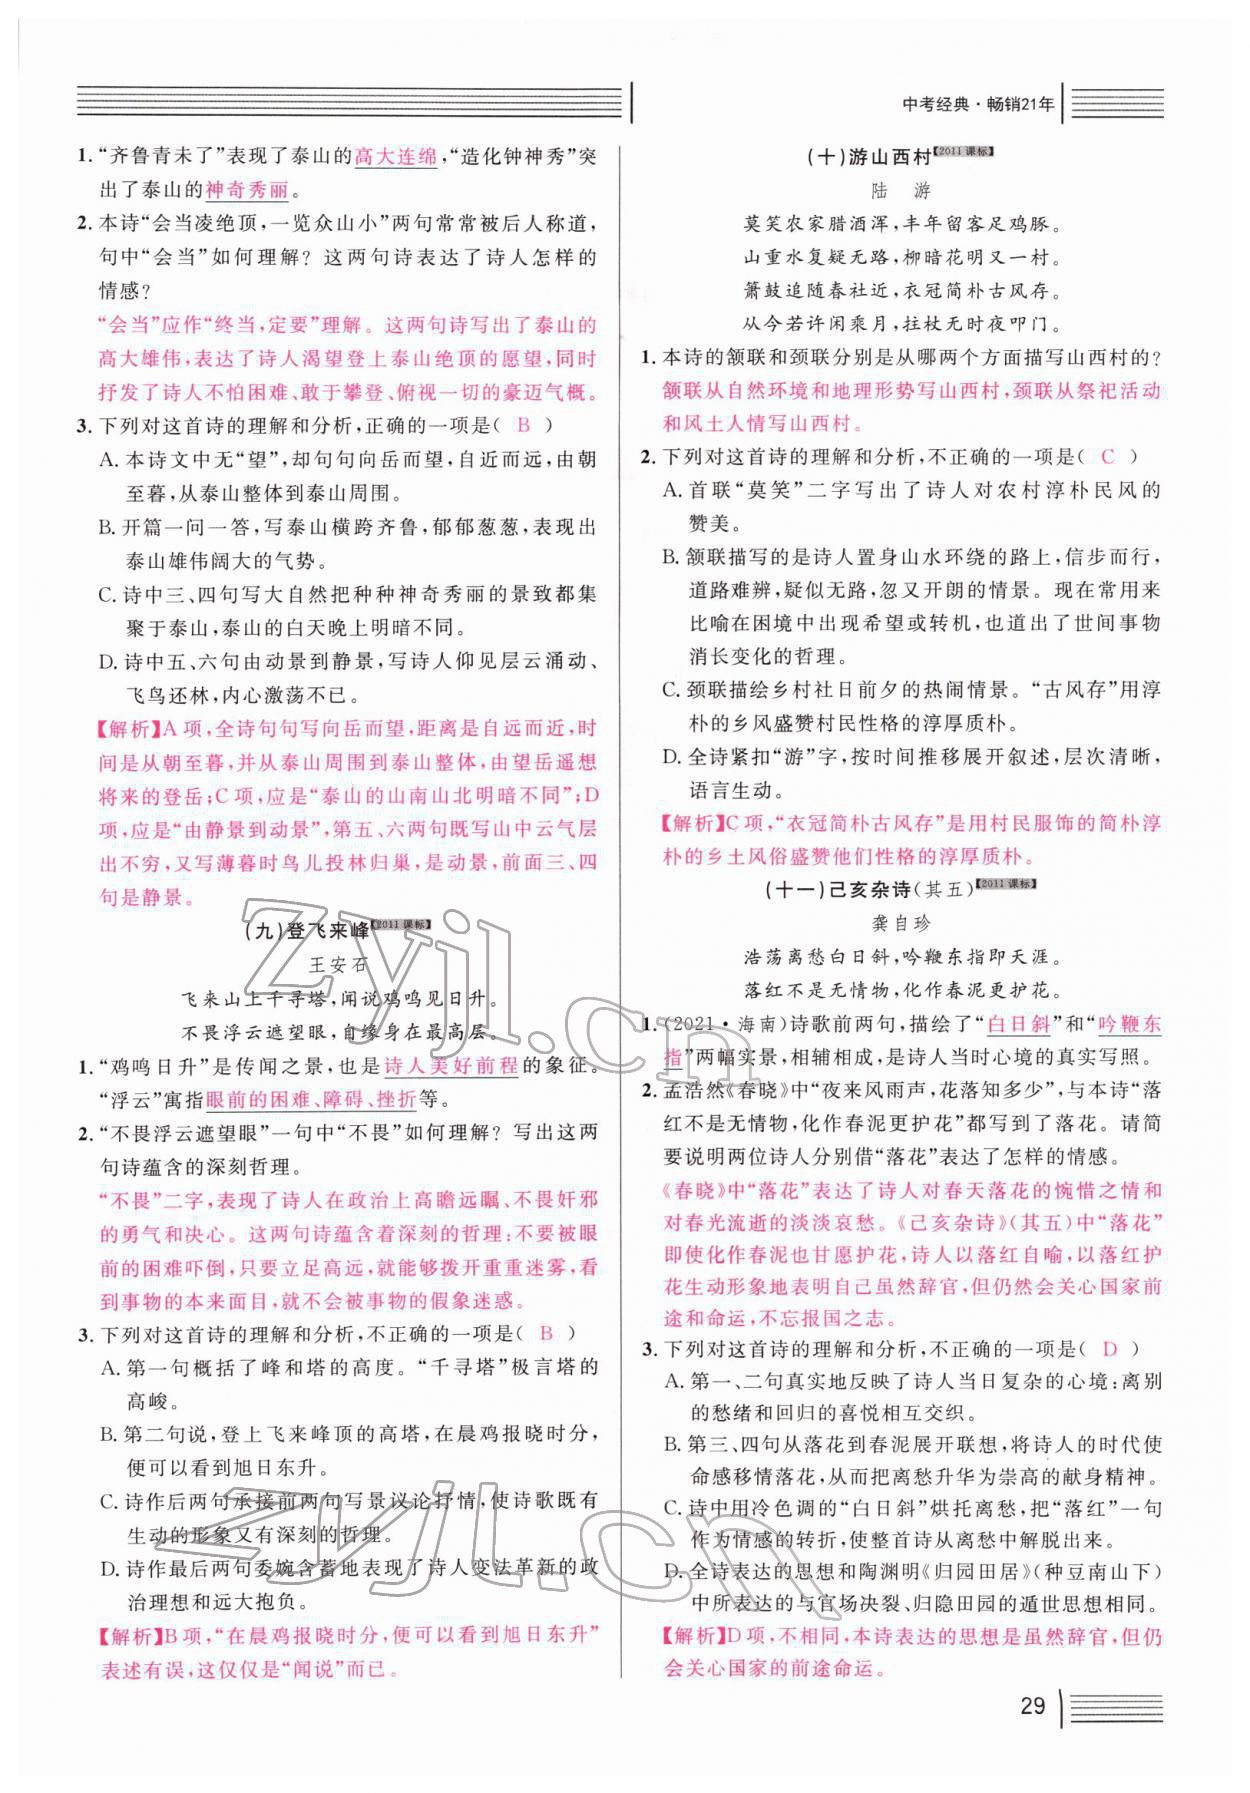 中考经典·畅销21年
1.“齐鲁青未了”表现了泰山的高大连绵,“造化钟神秀”突
出了泰山的神奇秀丽。
2.本诗“会当凌绝顶,一览众山小”两句常常被后人称道,
句中“会当”如何理解?这两句诗表达了诗人怎样的
情感?
“会当”应作“终当,定要”理解。这两句诗写出了泰山的
高大雄伟,表达了诗人渴望登上泰山绝顶的愿望,同时
抒发了诗人不怕困难、敢于攀登、俯视一切的豪迈气概。
3.下列对这首诗的理解和分析,正确的一项是( B )
A.本诗文中无“望”,却句句向岳而望,自近而远,由朝
至暮,从泰山整体到泰山周围。
B.开篇一问一答,写泰山横跨齐鲁,郁郁葱葱,表现出
泰山雄伟阔大的气势。
C.诗中三、四句写大自然把种种神奇秀丽的景致都集
聚于泰山,泰山的白天晚上明暗不同。
D.诗中五、六句由动景到静景,写诗人仰见层云涌动、
飞鸟还林,内心激荡不已。
【解析】A项,全诗句句写向岳而望,距离是自远而近,时
间是从朝至暮,并从泰山周围到泰山整体,由望岳遥想
将来的登岳;C项,应是“泰山的山南山北明暗不同”;D
项,应是“由静景到动景”,第五、六两句既写山中云气层
出不穷,又写薄暮时鸟儿投林归巢,是动景,前面三、四
句是静景。
(九)登飞来峰【2011课标】
王安石
飞来山上千寻塔,闻说鸡鸣见日升。
不畏浮云遮望眼,自缘身在最高层。
1.“鸡鸣日升”是传闻之景,也是诗人美好前程的象征。
“浮云”寓指眼前的困难、障碍、挫折等。
2.“不畏浮云遮望眼”一句中“不畏”如何理解?写出这两
句诗蕴含的深刻哲理。
“不畏”二字,表现了诗人在政治上高瞻远瞩、不畏奸邪
的勇气和决心。这两句诗蕴含着深刻的哲理:不要被眼
前的困难吓倒,只要立足高远,就能够拨开重重迷雾,看
到事物的本来面目,就不会被事物的假象迷惑。
3.下列对这首诗的理解和分析,不正确的一项是( B )
A.第一句概括了峰和塔的高度。“千寻塔”极言塔的
高峻。
B.第二句说,登上飞来峰顶的高塔,在晨鸡报晓时分,
便可以看到旭日东升。
C.诗作后两句承接前两句写景议论抒情,使诗歌既有
生动的形象又有深刻的哲理。
D.诗作最后两句委婉含蓄地表现了诗人变法革新的政
治理想和远大抱负。
【解析】B项,“在晨鸡报晓时分,便可以看到旭日东升”
表述有误,这仅仅是“闻说”而已。
(十)游山西村【2011课标】
陆 游
莫笑农家腊酒浑,丰年留客足鸡豚。
山重水复疑无路,柳暗花明又一村。
箫鼓追随春社近,衣冠简朴古风存。
从今若许闲乘月,拄杖无时夜叩门。
1.本诗的颔联和颈联分别是从哪两个方面描写山西村的?
颔联从自然环境和地理形势写山西村,颈联从祭祀活动
和风土人情写山西村。
2.下列对这首诗的理解和分析,不正确的一项是( C )
A.首联“莫笑”二字写出了诗人对农村淳朴民风的
赞美。
B.颔联描写的是诗人置身山水环绕的路上,信步而行,
道路难辨,疑似无路,忽又开朗的情景。现在常用来
比喻在困境中出现希望或转机,也道出了世间事物
消长变化的哲理。
C.颈联描绘乡村社日前夕的热闹情景。“古风存”用淳
朴的乡风盛赞村民性格的淳厚质朴。
D.全诗紧扣“游”字,按时间推移展开叙述,层次清晰,
语言生动。
【解析】C项,“衣冠简朴古风存”是用村民服饰的简朴淳
朴的乡土风俗盛赞他们性格的淳厚质朴。
(十一)己亥杂诗(其五)【2011课标】
龚自珍
浩荡离愁白日斜,吟鞭东指即天涯。
落红不是无情物,化作春泥更护花。
1.(2021·海南)诗歌前两句,描绘了“白日斜”和“吟鞭东
指”两幅实景,相辅相成,是诗人当时心境的真实写照。
2.孟浩然《春晓》中“夜来风雨声,花落知多少”,与本诗“落
红不是无情物,化作春泥更护花”中都写到了落花。请简
要说明两位诗人分别借“落花”表达了怎样的情感。
《春晓》中“落花”表达了诗人对春天落花的惋惜之情和
对春光流逝的淡淡哀愁。《己亥杂诗》(其五)中“落花”
即使化作春泥也甘愿护花,诗人以落红自喻,以落红护
花生动形象地表明自己虽然辞官,但仍然会关心国家前
途和命运,不忘报国之志。
3.下列对这首诗的理解和分析,不正确的一项是( D )
A.第一、二句真实地反映了诗人当日复杂的心境:离别
的愁绪和回归的喜悦相互交织。
B.第三、四句从落花到春泥展开联想,将诗人的时代使
命感移情落花,从而把离愁升华为崇高的献身精神。
C.诗中用冷色调的“白日斜”烘托离愁,把“落红”一句
作为情感的转折,使整首诗从离愁中解脱出来。
D.全诗表达的思想和陶渊明《归园田居》(种豆南山下)
中所表达的与官场决裂、归隐田园的遁世思想相同。
【解析】D项,不相同,本诗表达的思想是虽然辞官,但仍
会关心国家的前途命运。
29
zyjl.cn
zyjl.cn